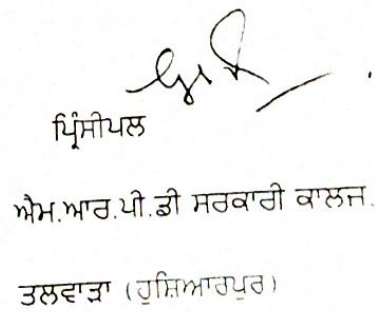 ਪ੍ਰਿੰਸੀਪਲ
ਐਮ.ਆਰ.ਪੀ.ਡੀ ਸਰਕਾਰੀ ਕਾਲਜ.
ਤਲਵਾੜਾ (ਹੁਸ਼ਿਆਰਪੁਰ)